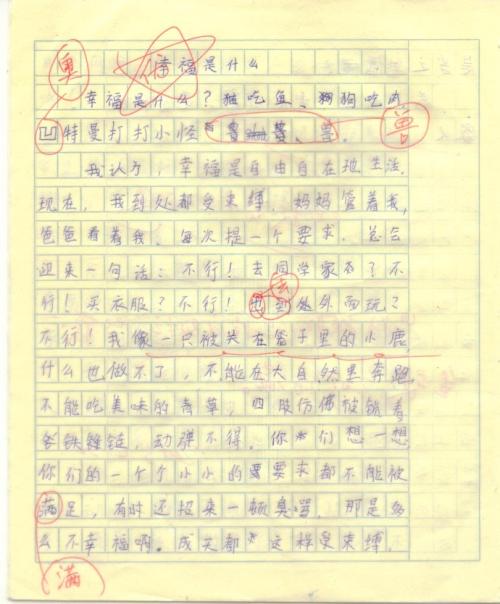 奥
幸福是什么
幸福是什么？猫吃鱼、狗狗吃肉
凹特曼打打小怪兽。
兽
我认为，幸福是自由自在地生活。
现在，我到处都受束缚，妈妈管着我，
爸爸看着我。每次提一个要求，总会
迎来一句话：不行！去同学家不？不
去
行！买衣服？不行！到处外面玩？
不行！我像一只被关在笼子里的小鹿，
什么也做不了，不能在大自然里奔跑
不能吃美味的青草，四肢仿佛被锁着
铁链，动弹不得。你们想一想，
你们的一个个小小的要求都不能被
满足，有时还招来一顿臭骂，那是多
么不幸福啊。成天都这样受束缚，
满